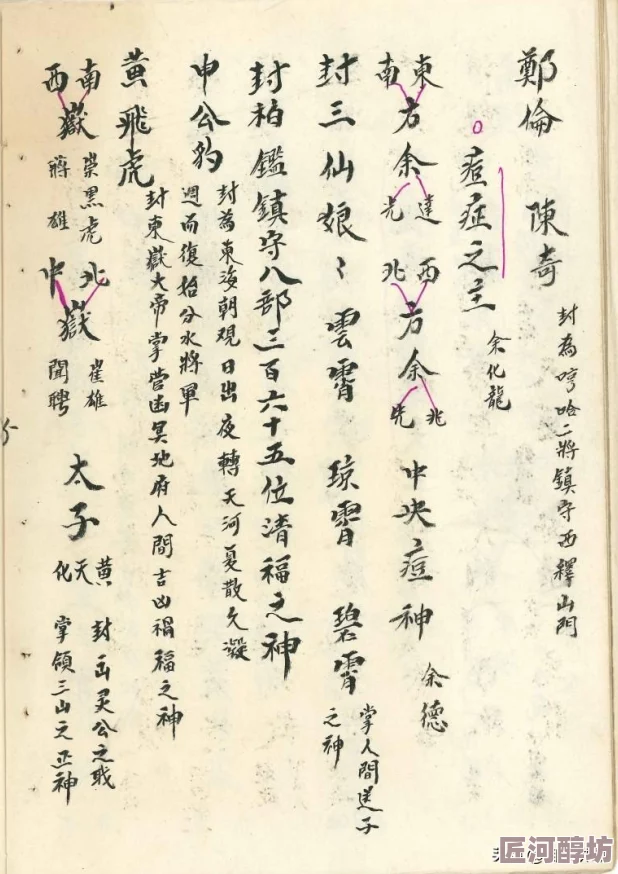 鄭倫 陳奇 封為哼哈二將鎮守西釋山門
痘症之主 余化龍
東南方余達兆 西北方余兆先 中央痘神 余德
封三仙娘〻 雲霄 瓊霄 碧霄 掌人間送子之神
封柏鑑鎮守八部三百六十五位清福之神
申公豹 封為東海朝觀日出夜轉天河夏散冬凝
週而復始分水將軍
黃飛虎 封東嶽大帝掌管幽冥地府人間吉凶禍福之神
南西嶽 崇黑虎 蔣雄 北中嶽 崔雄 聞聘 太子 黃天化 封丙灵公之职
掌領三山之正神
匠河醇坊